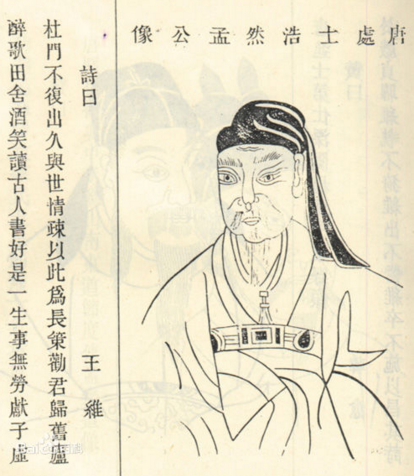 唐處士浩然孟公像
詩曰 王維
杜門不復出久與世情疎以此爲長策勸君歸舊廬
醉歌田舍酒笑讀古人書好是一生事無勞獻子虛